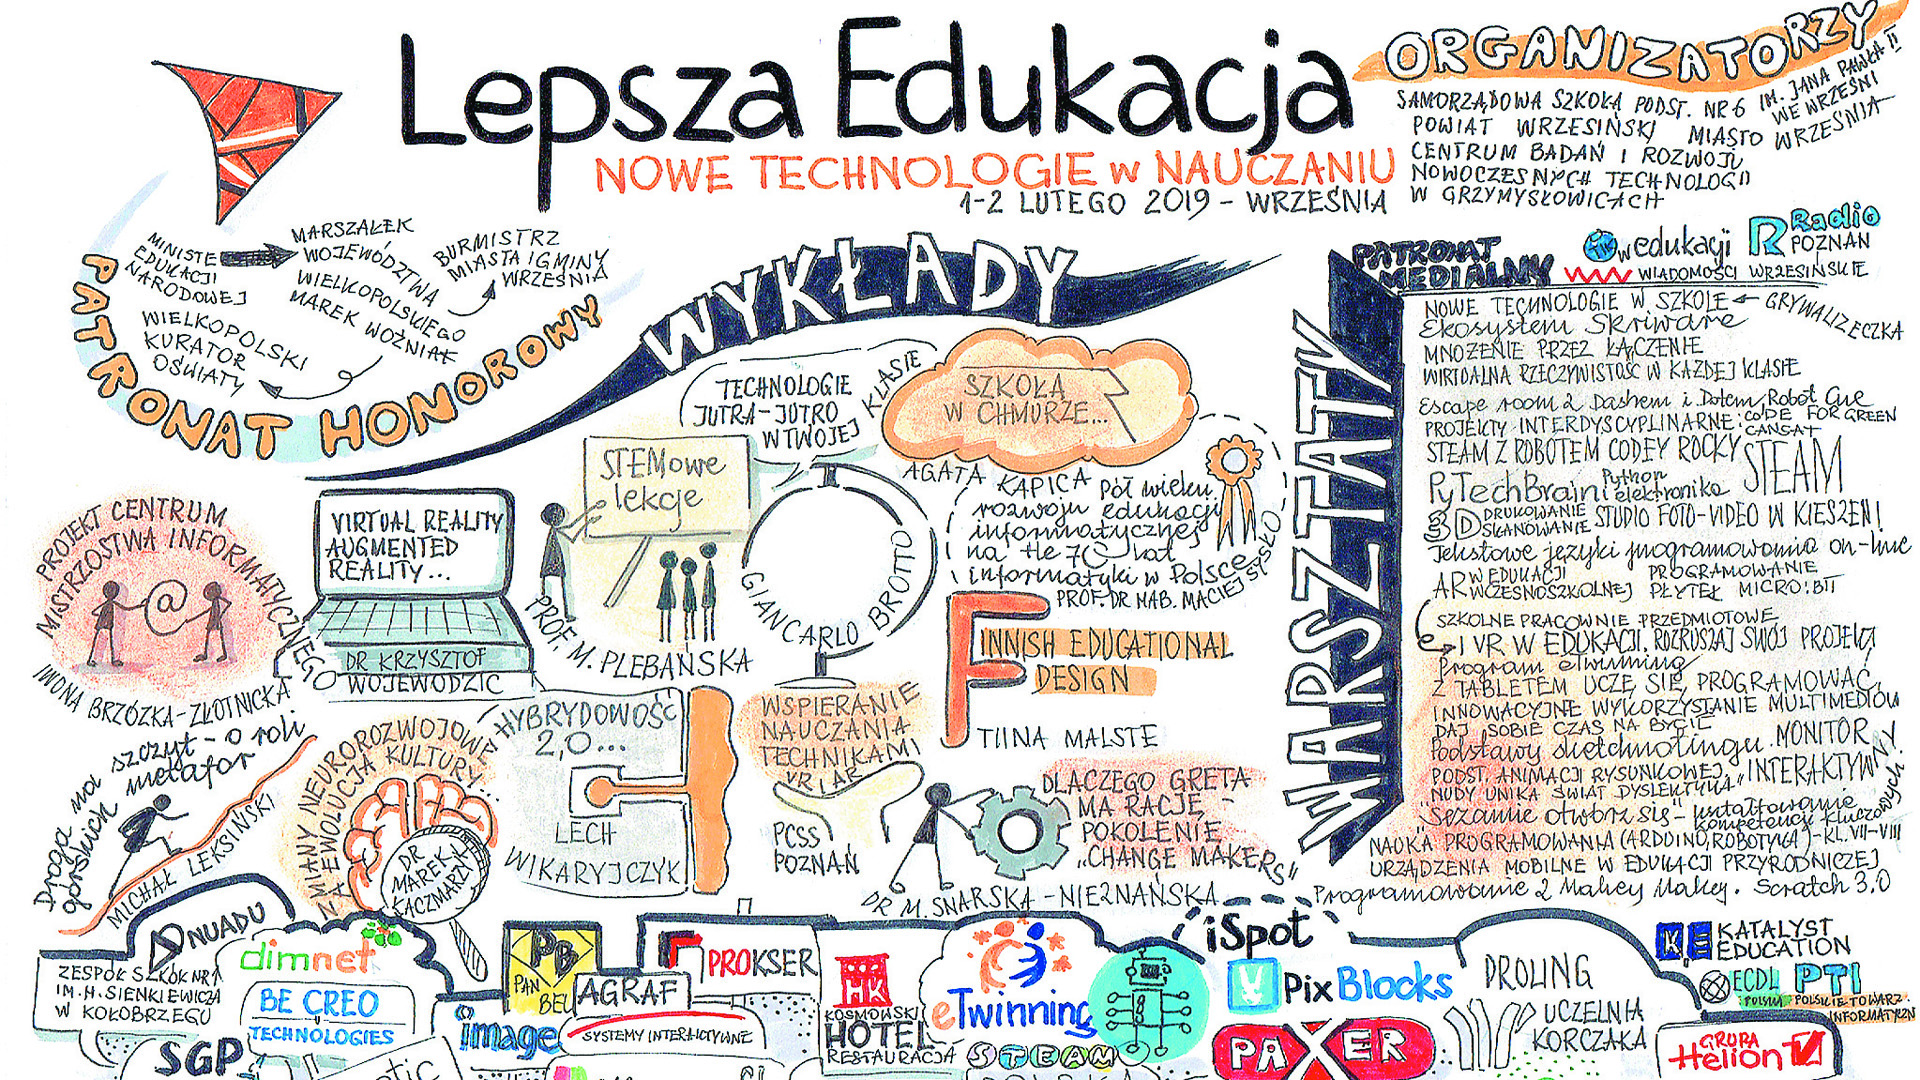 Lepsza Edukacja
NOWE TECHNOLOGIE W NAUCZANIU
1-2 LUTEGO 2019 - WRZEŚNIA
ORGANIZATORZY
SAMORZĄDOWA SZKOŁA PODST. NR 6 IM. JANA PAWŁA II
WE WRZEŚNI
POWIAT WRZESIŃSKI MIASTO WRZEŚNIA
CENTRUM BADAŃ I ROZWOJU
NOWOCZESNYCH TECHNOLOGII
W GRZYMYSŁOWICACH
PATRONAT HONOROWY
MINISTE
EDUKACJI
NARODOWEJ
MARSZAŁEK
WOJEWÓDZTWA
WIELKOPOLSKIEGO
MAREK WOŹNIAK
BURMISTRZ
MIASTA I GMINY
WRZEŚNIA
WIELKOPOLSKI
KURATOR
OŚWIATY
WYKŁADY
TECHNOLOGIE
JUTRA-JUTRO
W TWOJEJ
KLASIE
GIANCARLO BROTTO
SZKOŁA
W CHMURZE...
AGATA KAPICA
STEMowe
lekcje
PROF. M. PLEBAŃSKA
VIRTUAL REALITY
AUGMENTED
REALITY...
DR KRZYSZTOF
WOJEWODZIC
PROJEKT CENTRUM
MISTRZOSTWA INFORMATYCZNEGO
@
IWONA BRZÓZKA-ZŁOTNICKA
Pół wieku
rozwoju edukacji
informatycznej
na tle 70 lat
informatyki w Polsce
PROF. DR HAB. MACIEJ SYSŁO
FINNISH EDUCATIONAL
DESIGN
TIINA MALSTE
Droga na szczyt - o roli
górskich metafor
MICHAŁ LEKSIŃSKI
ZMIANY NEUROROZWOJOWE
A EWOLUCJA KULTURY...
DR
MAREK
KACZMARZYK
HYBRYDOWOŚĆ
2,0...
LECH
WIKARYJCZYK
WSPIERANIE
NAUCZANIA
TECHNIKAMI
VR I AR
PCSS
POZNAŃ
DLACZEGO GRETA
MA RACJĘ -
POKOLENIE
„CHANGE MAKERS"
DR M. SNARSKA-NIEZNAŃSKA
PATRONAT
MEDIALNY
TIK w edukacji
R Radio
POZNAŃ
WIADOMOŚCI WRZESIŃSKIE
WARSZTATY
NOWE TECHNOLOGIE W SZKOLE ← GRYWALIZECZKA
Ekosystem Skriware
MNOŻENIE PRZEZ ŁĄCZENIE
WIRTUALNA RZECZYWISTOŚĆ W KAŻDEJ KLASIE
Escape room z Dashem i Dotem, Robot Cue
PROJEKTY INTERDYSCYPLINARNE: CODE FOR GREEN
CANSAT
STEAM Z ROBOTEM CODEY ROCKY STEAM
PyTechBrain Python
i elektronika
3D DRUKOWANIE
SKANOWANIE STUDIO FOTO-VIDEO W KIESZENI
Tekstowe języki programowania on-line
AR W EDUKACJI
WCZESNOSZKOLNEJ
PROGRAMOWANIE
PŁYTEK MICRO:BIT
SZKOLNE PRACOWNIE PRZEDMIOTOWE
I VR W EDUKACJI. ROZRUSZAJ SWÓJ PROJEKT
Program eTwinning
Z TABLETEM UCZĘ SIĘ PROGRAMOWAĆ
INNOWACYJNE WYKORZYSTANIE MULTIMEDIÓW
DAJ SOBIE CZAS NA BYCIE
Podstawy sketchnotingu. MONITOR
INTERAKTYWNY.
PODST. ANIMACJI RYSUNKOWEJ.
NUDY UNIKA ŚWIAT DYSLEKTYKA"
„Sezamie otwórz się" - kształtowanie
kompetencji kluczowych
NAUKA PROGRAMOWANIA (ARDUINO, ROBOTYKA) - KL. VII-VIII
URZĄDZENIA MOBILNE W EDUKACJI PRZYRODNICZEJ
Programowanie z Makey Makey. Scratch 3.0
DNUADU
dimnet
BE CREO
TECHNOLOGIES
ZESPÓŁ SZKÓŁ NR 1
IM. H. SIENKIEWICZA
W KOŁOBRZEGU
SGP
PB
PAN
BEL
AGRAF
image
PROKSER
SYSTEMY INTERAKTYWNE
HK
KOSMOWSKI
HOTEL
RESTAURACJA
eTwinning
STEAM
iSpot
PixBlocks
PAXER
DROLING
UCZELNIA
KORCZAKA
KE KATALYST
EDUCATION
ECDL
POLSKA
PTI
POLSKIE TOWARZ.
INFORMATYCZN
GRUPA
Helion